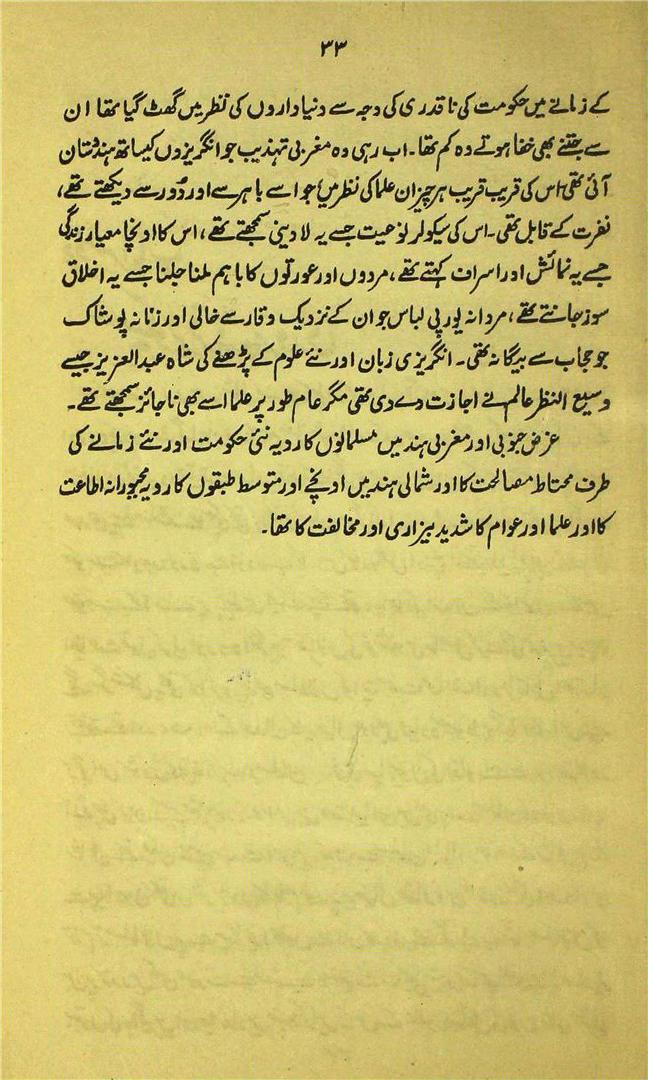 ۳۳
کے زمانے میں حکومت کی ناقدری کی وجہ سے دنیاداروں کی نظر میں گھٹ گیا تھا ان
سے جتنے بھی خفا ہوتے وہ کم تھا۔ اب رہی وہ مغربی تہذیب جو انگریزوں کیساتھ ہندوستان
آئی تھی اس کی قریب قریب ہر چیز ان علما کی نظر میں جو اسے باہر سے اور دُور سے دیکھتے تھے،
نفرت کے قابل تھی۔ اس کی سیکولر نوعیت جسے یہ لادینی سمجھتے تھے، اس کا اونچا معیار زندگی
جسے یہ نمائش اور اسراف کہتے تھے، مردوں اور عورتوں کا باہم ملنا جلنا جسے یہ اخلاق
سوز جانتے تھے، مردانہ یورپی لباس جو ان کے نزدیک وقار سے خالی اور زنانہ پوشاک
جو حجاب سے بیگانہ تھی۔ انگریزی زبان اور نئے علوم کے پڑھنے کی شاہ عبدالعزیز جیسے
وسیع النظر عالم نے اجازت دے دی تھی مگر عام طور پر علما اسے بھی ناجائز سمجھتے تھے۔
غرض جنوبی اور مغربی ہند میں مسلمانوں کا رویہ نئی حکومت اور نئے زمانے کی
طرف محتاط مصالحت کا اور شمالی ہند میں اونچے اور متوسط طبقوں کا رویہ مجبورانہ اطاعت
کا اور علما اور عوام کا شدید بیزاری اور مخالفت کا تھا۔